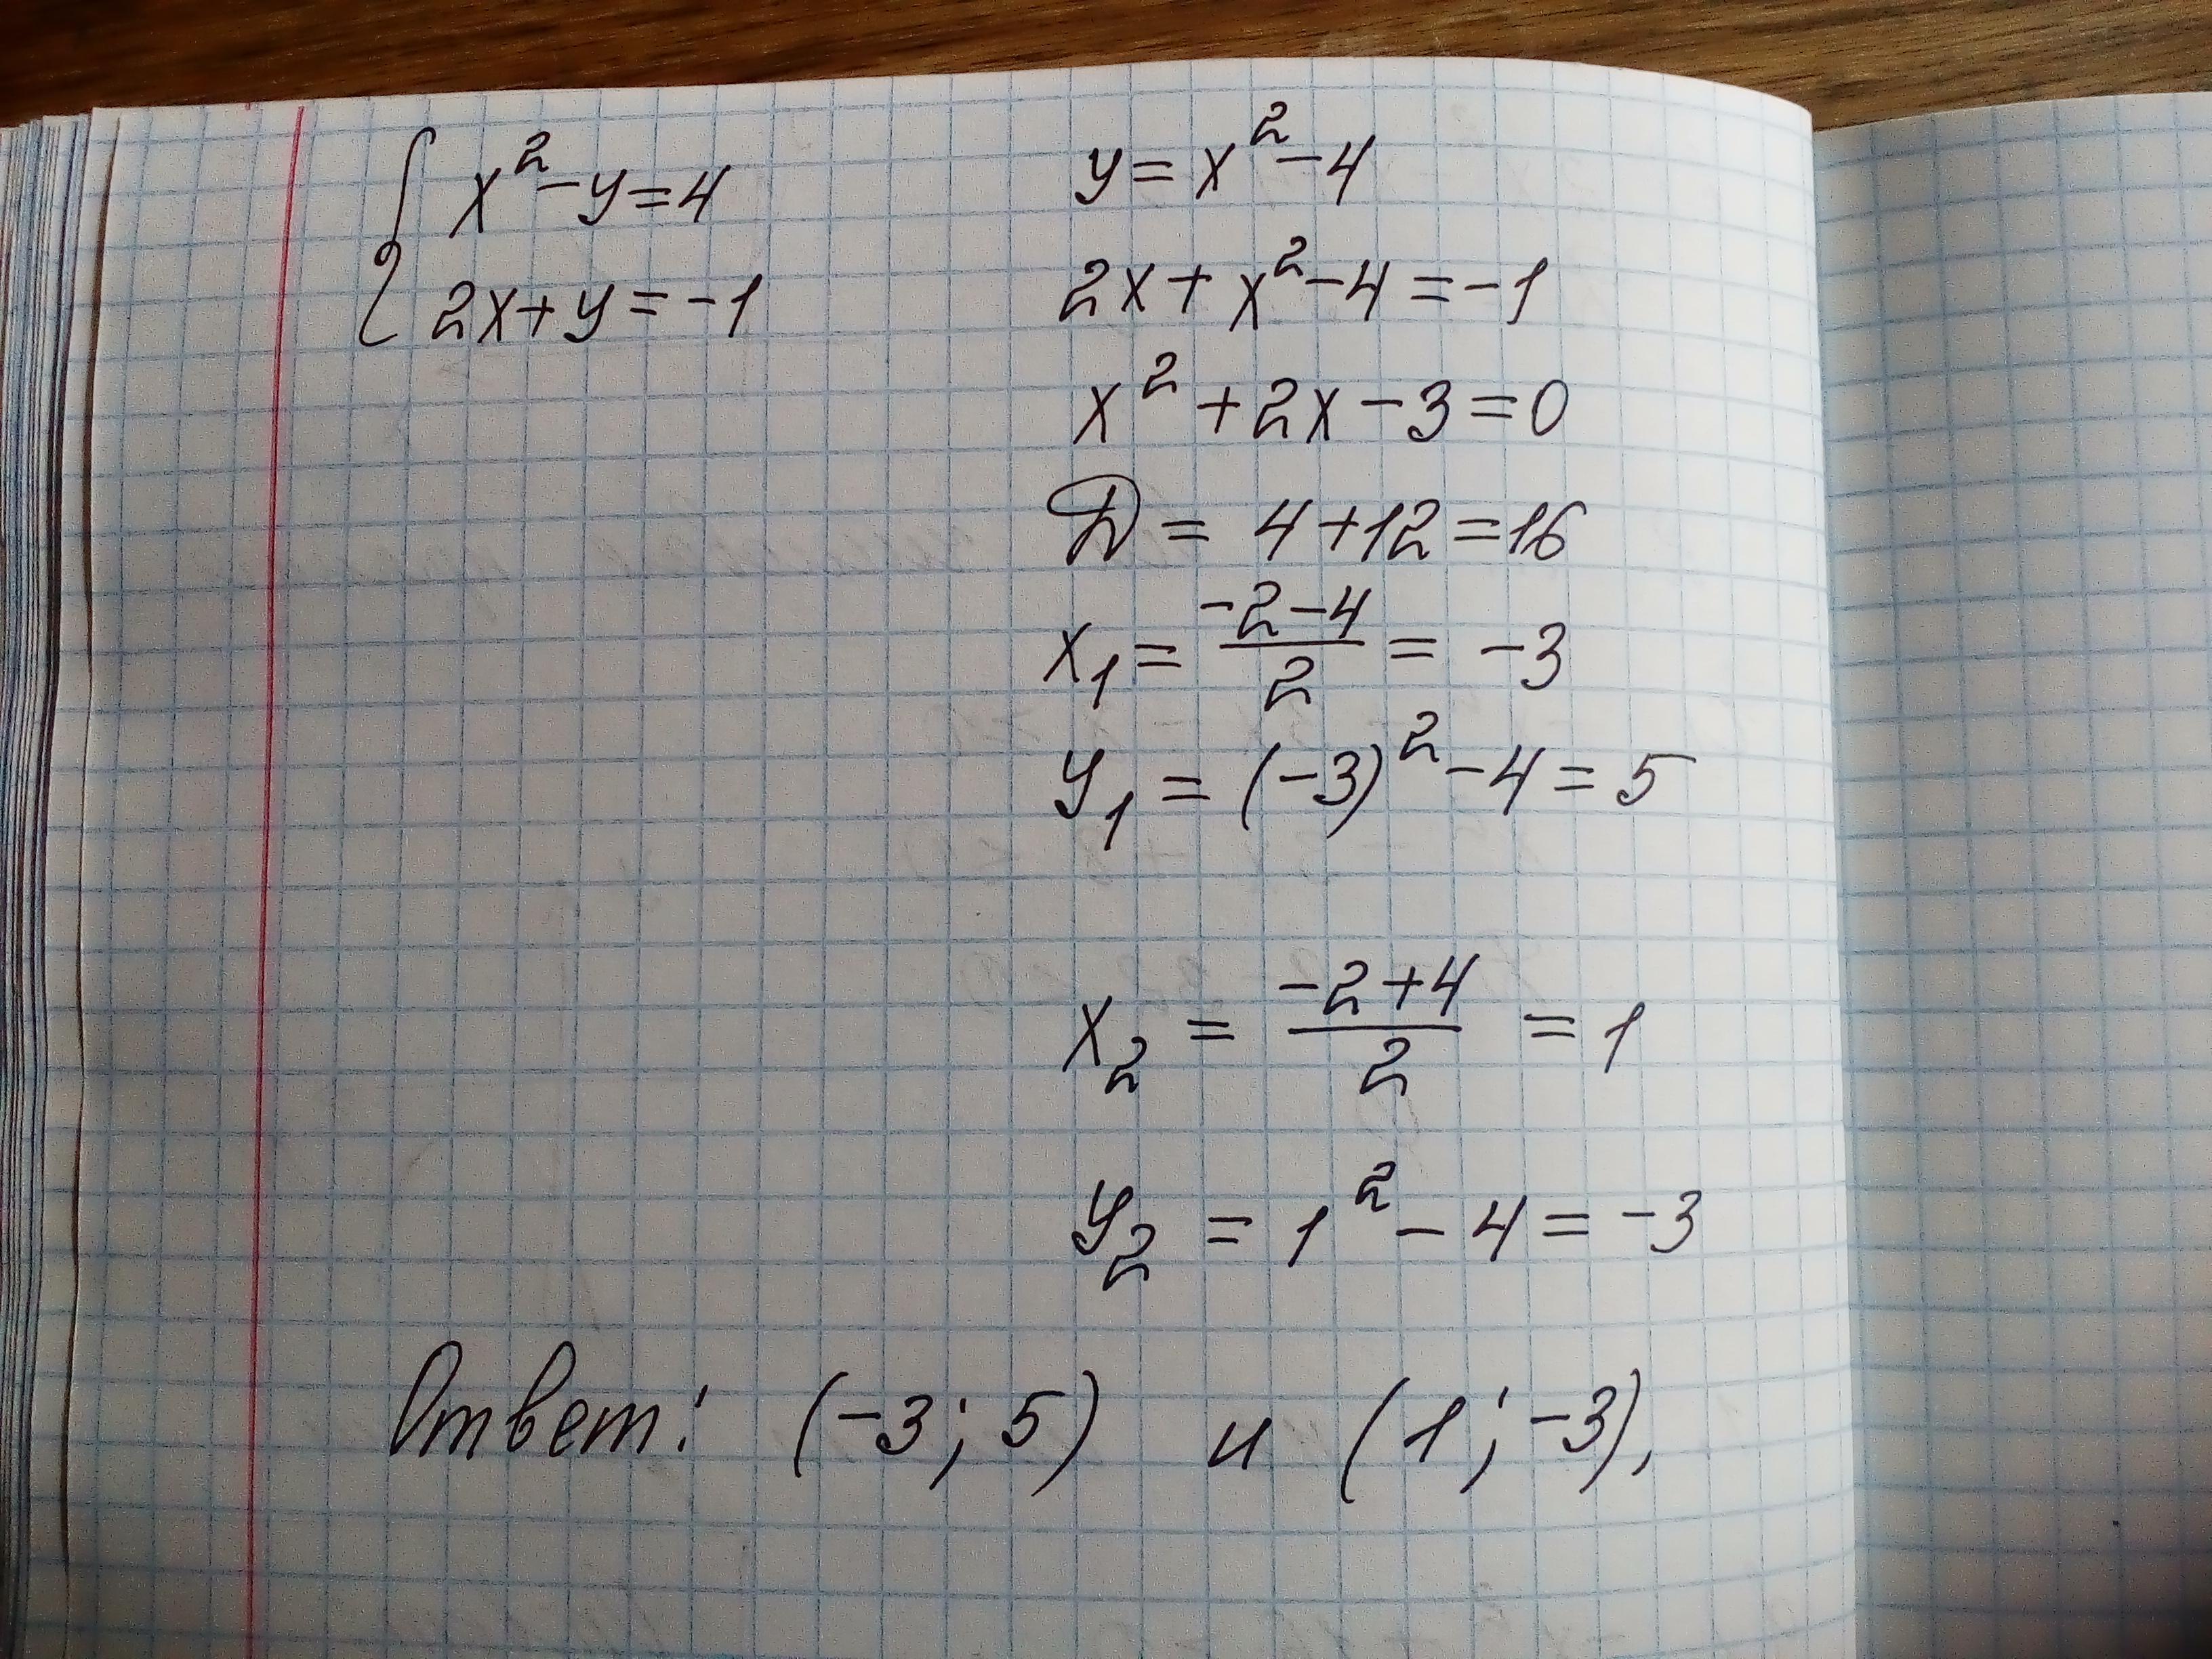 x² - y = 4
2x + y = -1
y = x² - 4
2x + x² - 4 = -1
x² + 2x - 3 = 0
Д = 4 + 12 = 16
x₁ = (-2-4)/2 = -3
y₁ = (-3)² - 4 = 5
x₂ = (-2+4)/2 = 1
y₂ = 1² - 4 = -3
Ответ: (-3; 5) и (1; -3),